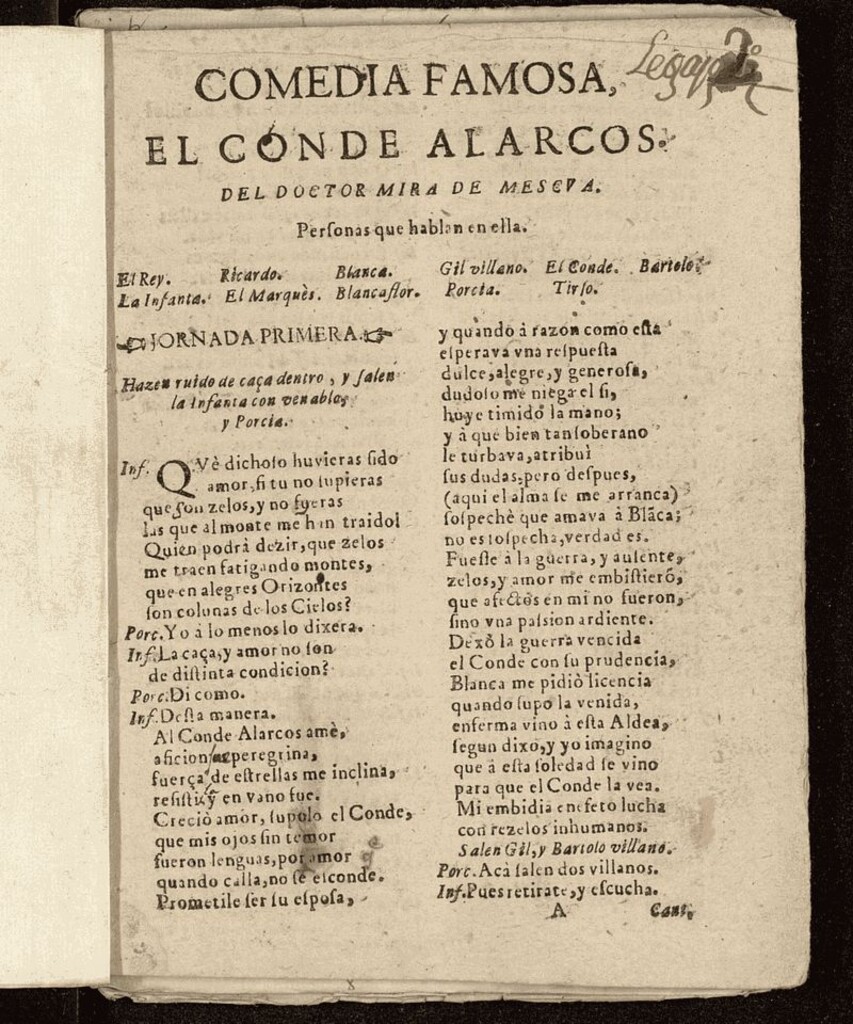 Legajo 2º
COMEDIA FAMOSA,
EL CONDE ALARCOS.
DEL DOCTOR MIRA DE MESCVA.
Perſonas que hablan en ella.
El Rey. Ricardo. Blanca. Gil villano. El Conde. Bartolo.
La Infanta. El Marquès. Blancaflor. Porcia. Tirſo.
JORNADA PRIMERA.
Hazen ruido de caça dentro, y ſalen
la Infanta con venablo,
y Porcia.
Inf. QVè dichoſo huvieras ſido
amor, ſi tu no ſupieras
que ſon zelos, y no fueras
las que al monte me han traido!
Quien podrà dezir, que zelos
me traen fatigando montes,
que en alegres Orizontes
ſon colunas de los Cielos?
Porc. Yo à lo menos lo dixera.
Inf. La caça, y amor no ſon
de diſtinta condicion?
Porc. Di como.
Inf. Deſta manera.
Al Conde Alarcos amè,
aficion fue peregrina,
fuerça de eſtrellas me inclina,
reſiſti, y en vano fue.
Creciò amor, ſupolo el Conde,
que mis ojos ſin temor
fueron lenguas, por amor
quando calla, no ſe eſconde.
Prometile ſer ſu eſpoſa,
y quando à razon como eſta
eſperava vna reſpueſta
dulce, alegre, y generoſa,
dudoſo me niega el ſi,
huye timido la mano;
y à que bien tan ſoberano
le turbava, atribuì
ſus dudas; pero deſpues,
(aqui el alma ſe me arranca)
ſoſpechè que amava à Blãca;
no es ſoſpecha, verdad es.
Fueſſe à la guerra, y auſente,
zelos, y amor me embiſtierõ,
que afectos en mi no fueron,
ſino vna paſsion ardiente.
Dexò la guerra vencida
el Conde con ſu prudencia,
Blanca me pidiò licencia
quando ſupo la venida,
enferma vino à eſta Aldea,
ſegun dixo, y yo imagino
que à eſta ſoledad ſe vino
para que el Conde la vea.
Mi embidia en efeto lucha
con rezelos inhumanos.
Salen Gil, y Bartolo villano.
Porc. Acà ſalen dos villanos.
Inf. Pues retirate, y eſcucha.
A Cant.